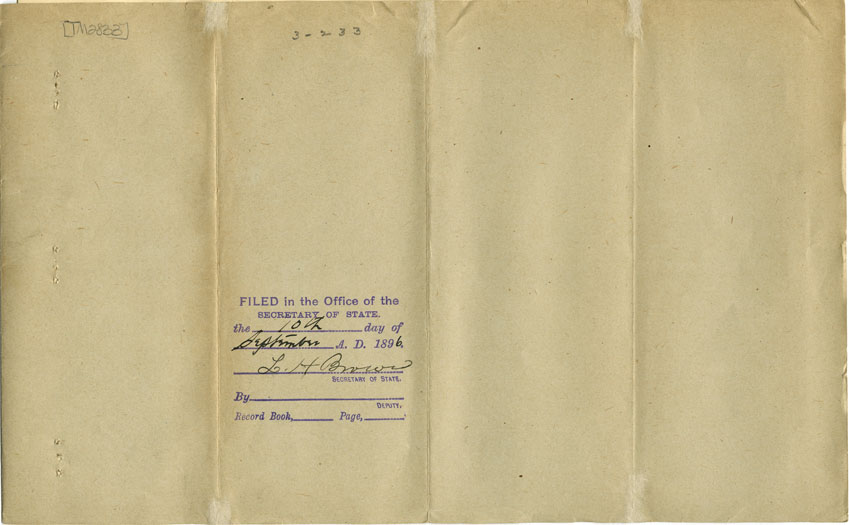 [TM2833]
3-233
FILED in the Office of the
SECRETARY OF STATE.
the 10th day of
September A. D. 1896.
L. H. Brown
SECRETARY OF STATE.
By
DEPUTY.
Record Book, Page,